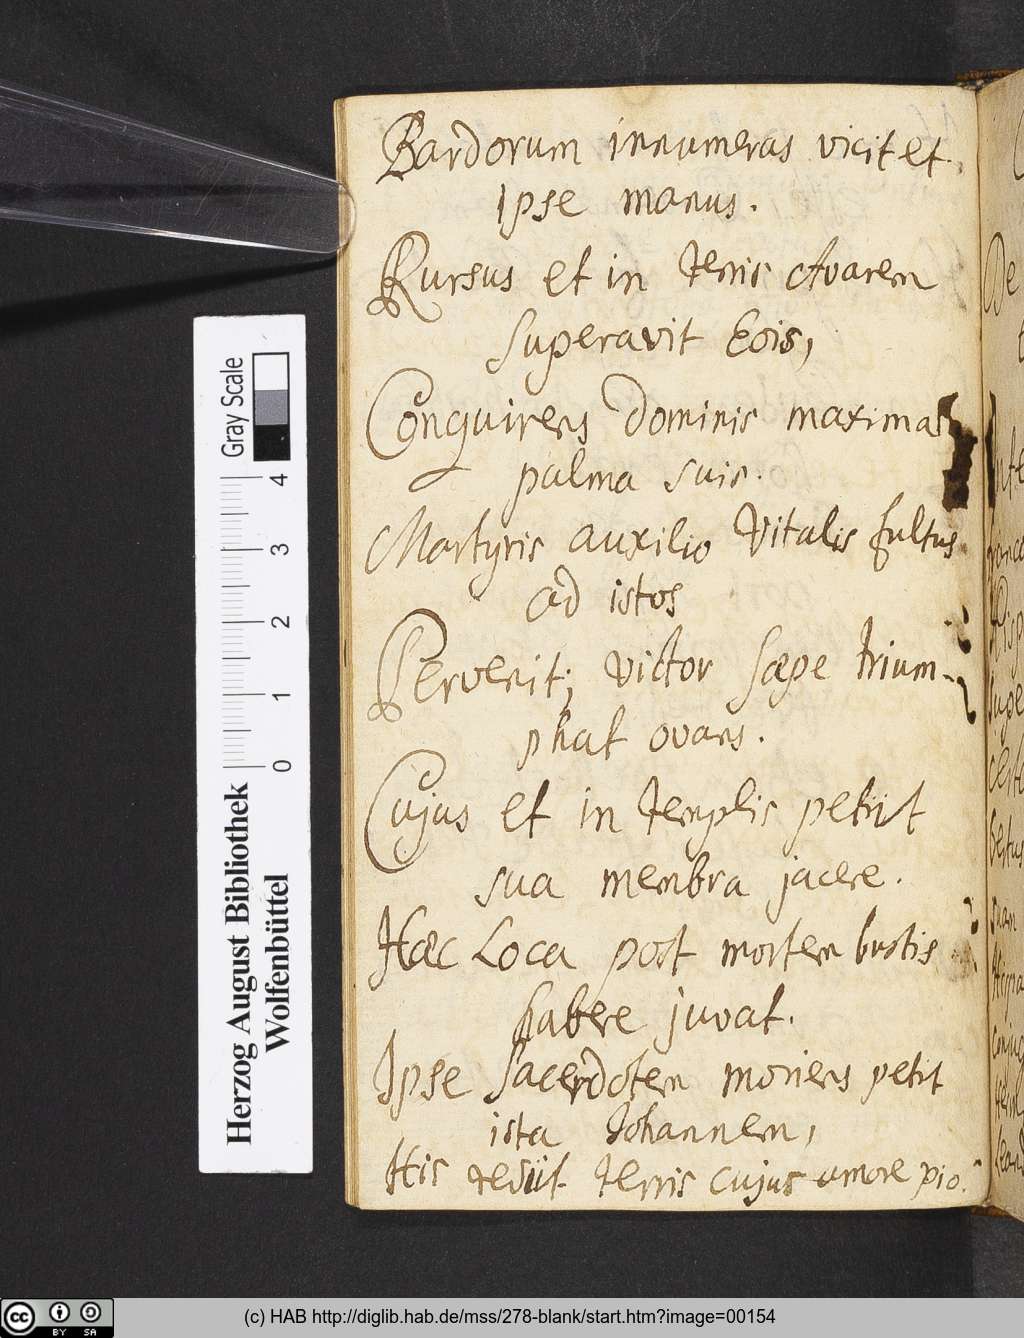 Bardorum innumeras vicit et
Ipse manus.
Rursus et in terris Avarem
superavit Eois,
Conquirens dominis maximas
palma suis.
Martyris auxilio Vitalis fultus
ad istos
Pervenit; victor sæpe trium-
phat ovans.
Cujus et in templis petiit
sua membra jacere.
Hæc Loca post mortem bustis
habere juvat.
Ipse sacerdotem moriens petit
ista Johannem,
His rediit terris cujus amore pio.
Gray Scale
4
3
2
1
0
Herzog August Bibliothek
Wolfenbüttel
cc BY SA
(c) HAB http://diglib.hab.de/mss/278-blank/start.htm?image=00154